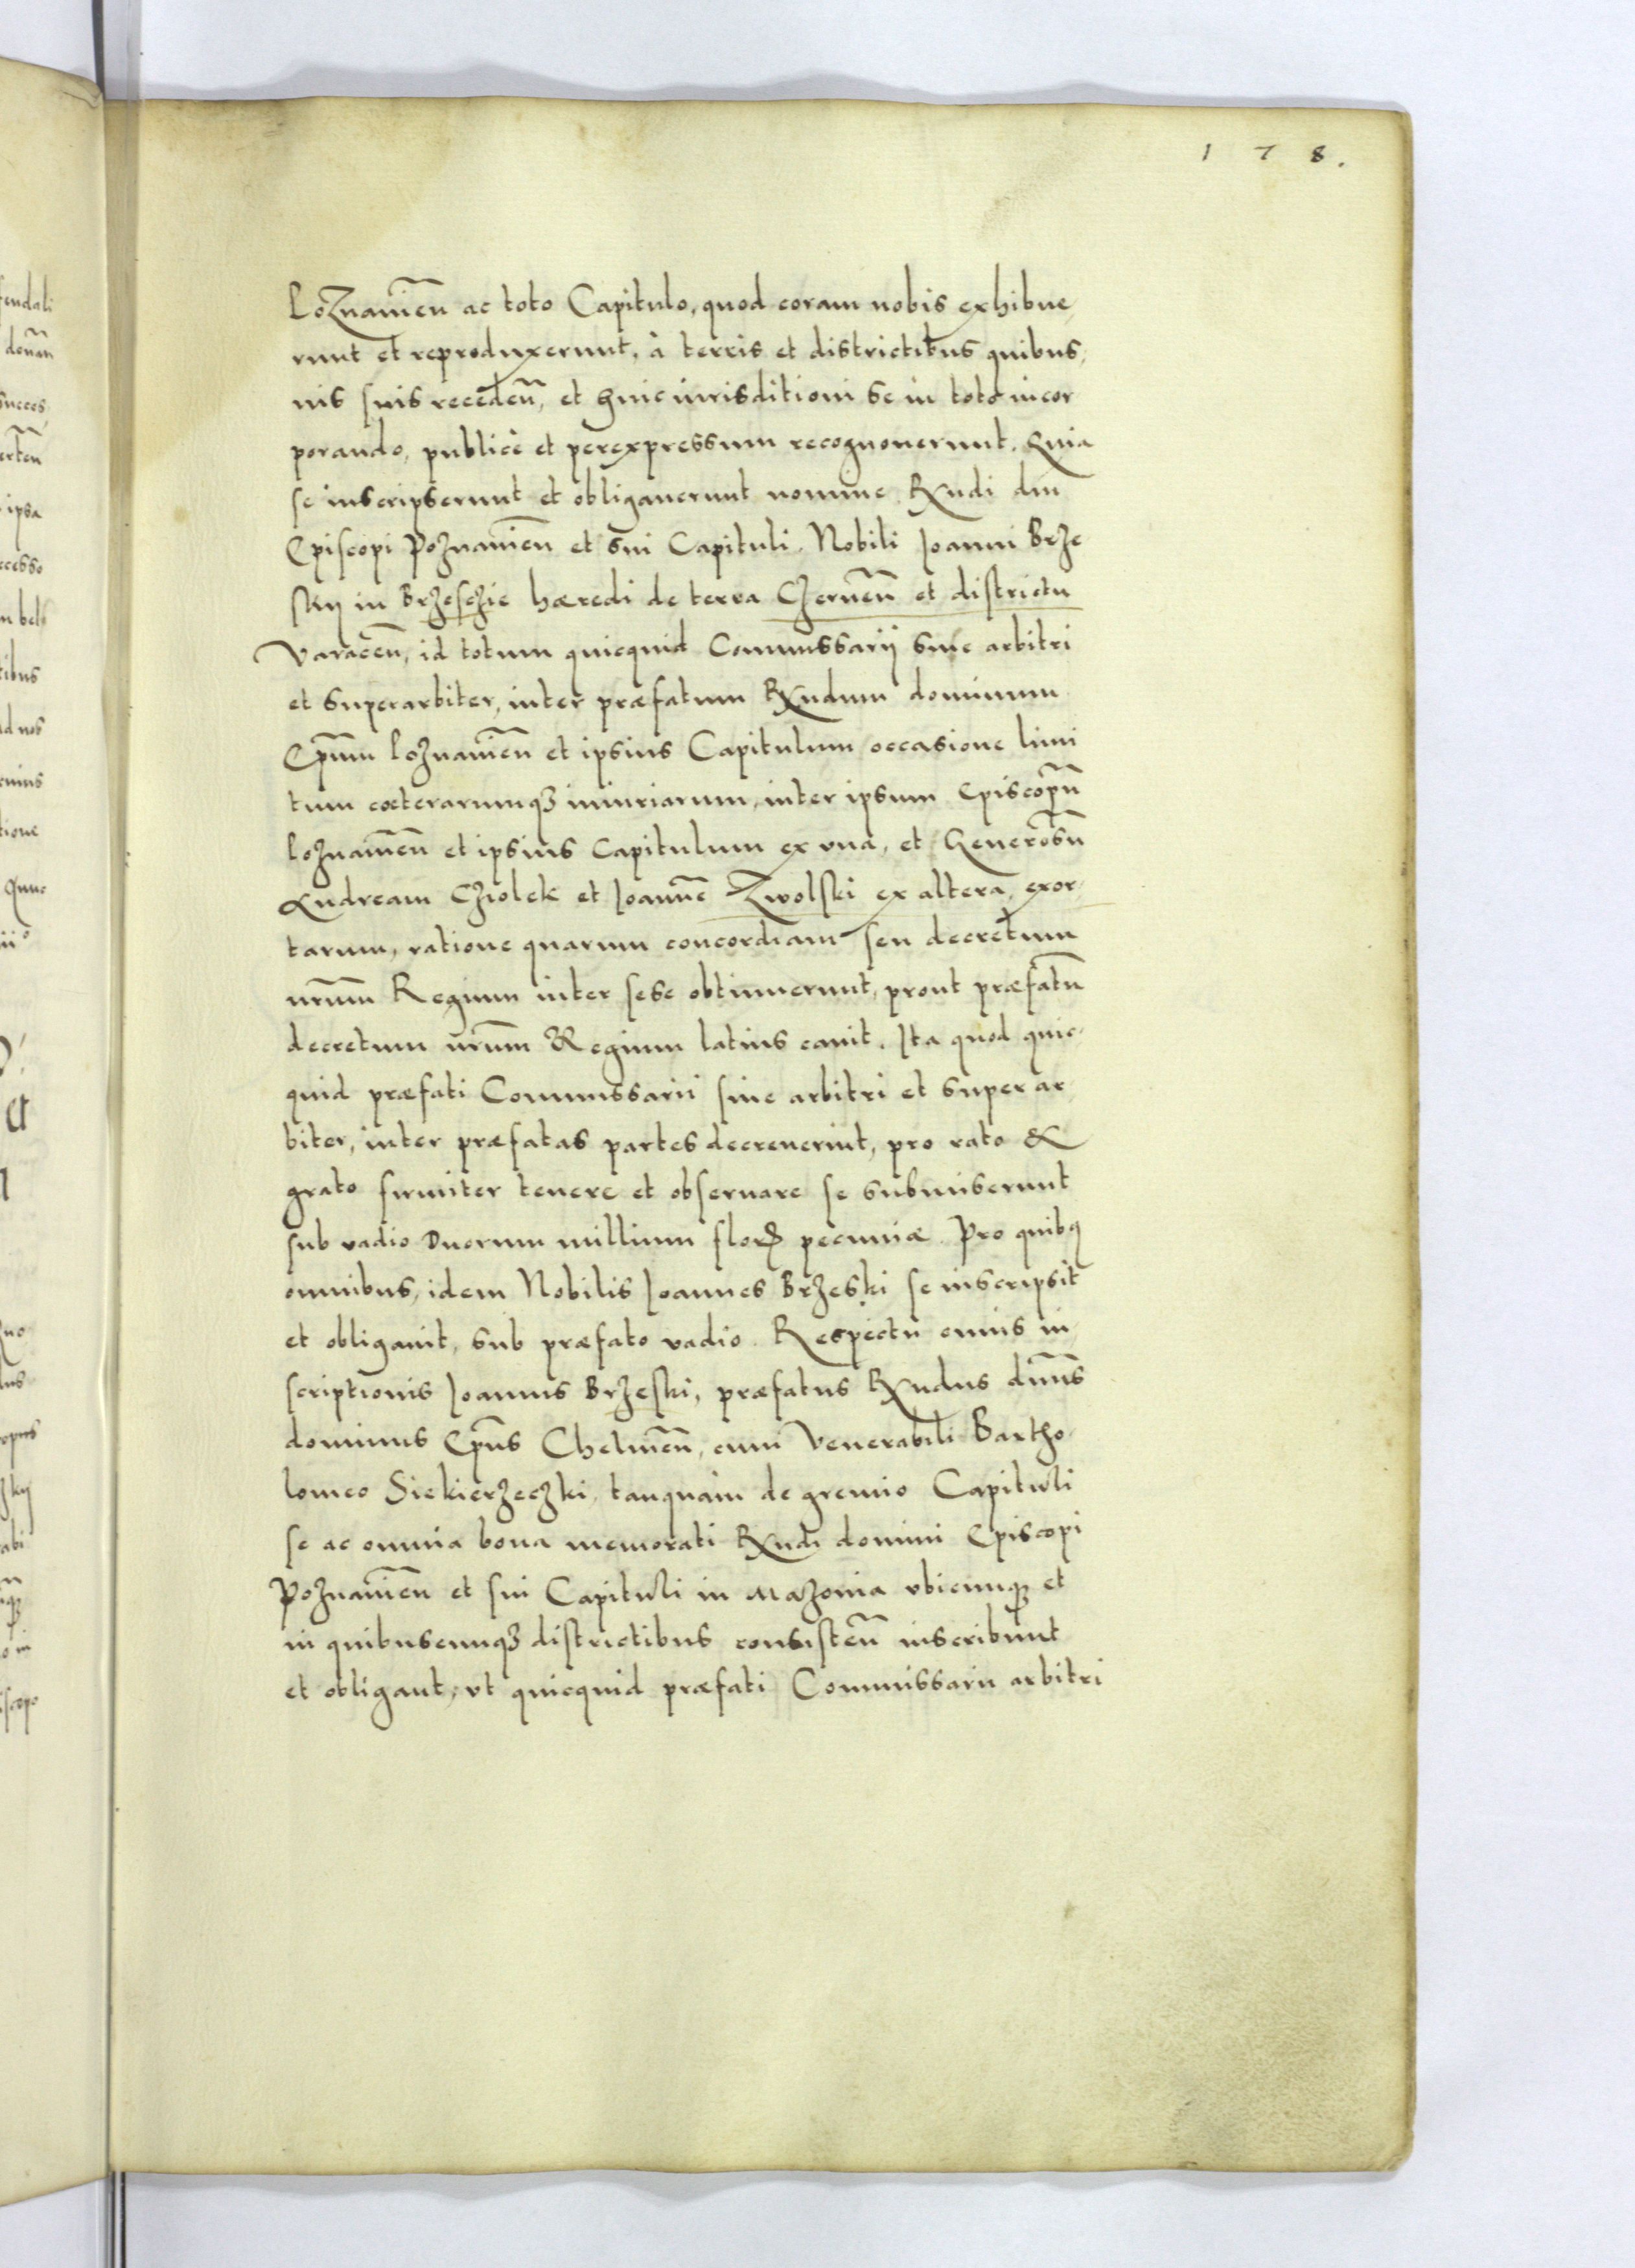 178.
Poznanien̄ ac toto Capitulo, quod coram nobis exhibue
runt et reproduxerunt, à terris et districtibus quibus,
uis suis receden̄, et huic iurisditioni se in toto incor
porando, publicè et per expressum recognouerunt. Quia
se inscripserunt et obligauerunt nomine Rx̄ndi dn̄i
Episcopi Poznanien̄ et sui Capituli. Nobili Joanni Brze
skij in Brzeschzie hæredi de terra Czernen̄ et districtu
Varacen̄, id totum quicquid Commissarij siue arbitri
et superarbiter, inter præfatum Rx̄ndum dominum
Ep̄um Poznanien̄ et ipsius Capitulum occasione limi
tum cæterarumqꝫ iniuriarum, inter ipsum Episcopū
Poznanien̄ et ipsius Capitulum ex vna, et Generosū
Andream Cziolek et Joannē Zwolski ex altera, exor-
tarum, ratione quarum concordiam seu decretum
nr̄um Regium inter sese obtinuerunt, prout præfatū
decretum nr̄um Regium latius canit. Ita quod quic-
quid præfati Commissarii siue arbitri et superar
biter, inter præfatas partes decreuerint, pro rato &
grato firmiter tenere et obseruare se submiserunt
sub vadio Duorum millium florꝫ pecuniæ. Pro quibꝰ
omnibus, idem Nobilis Joannes Brzeski se inscripsit
et obligauit, sub præfato vadio. Respectu cuius in
scriptionis Joannis Brzeski, præfatus Rx̄ndus dn̄us
dominus Ep̄us Chelmen̄, cum Venerabili Bartho
lomeo Siekierzeczki, tanquam de gremio Capituli
se ac omnia bona memorati Rx̄ndi domini Episcopi
Poznanien̄ et sui Capituli in Mazouia vbicunqꝫ et
in quibuscunqꝫ districtibus consisten̄ inscribunt
et obligant, vt quicquid præfati Commissarii arbitri